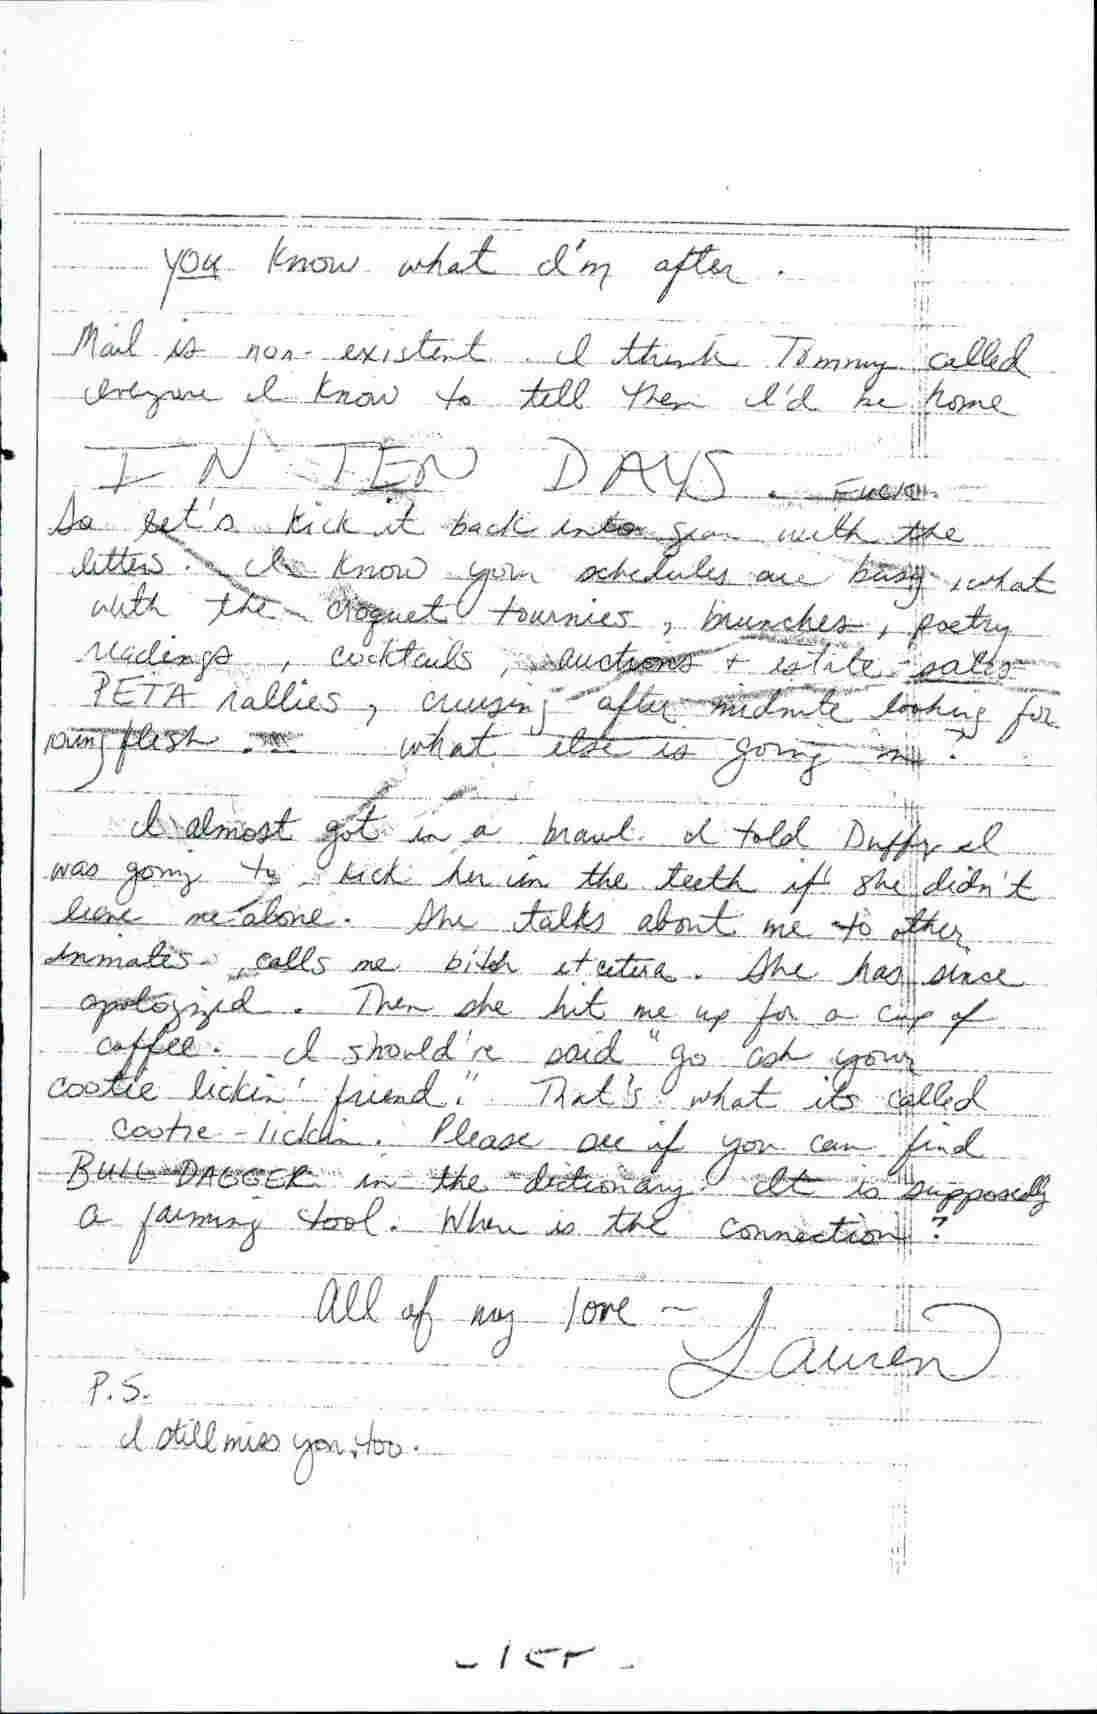 you know what I'm after.
Mail is non-existent. I think Tommy called
everyone I know to tell them I'd be home
IN TEN DAYS.
So let's kick it back into gear with the
letters. I know your schedules are busy, what
with the croquet tournies, brunches, poetry
readings, cocktails, auctions + estate sales
PETA rallies, cruising after midnite looking for
young flesh ... what else is going on?
I almost got in a brawl. I told Duffy I
was going to kick her in the teeth if she didn't
leave me alone. She talks about me to other
inmates, calls me bitch etcetera. She has since
apologized. Then she hit me up for a cup of
coffee. I should've said "go ask your
cootie lickin' friend." That's what its called
cootie-lickin. Please see if you can find
BULL DAGGER in the dictionary. It is supposedly
a farming tool. Where is the connection?
All of my love ~
Lauren
P.S.
I still miss you, too.